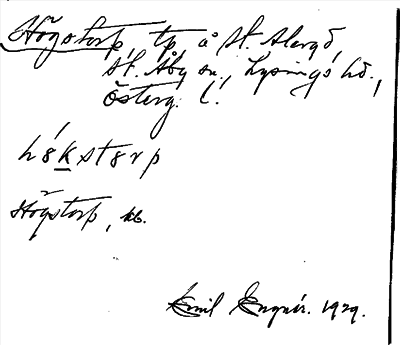 Högstorp, tp, å St. Åbergå,
St. Åby sn., Lysings hd.,
Österg. l.
hö́kstorp
Högstorp, kb.
Emil Engnér. 1929.